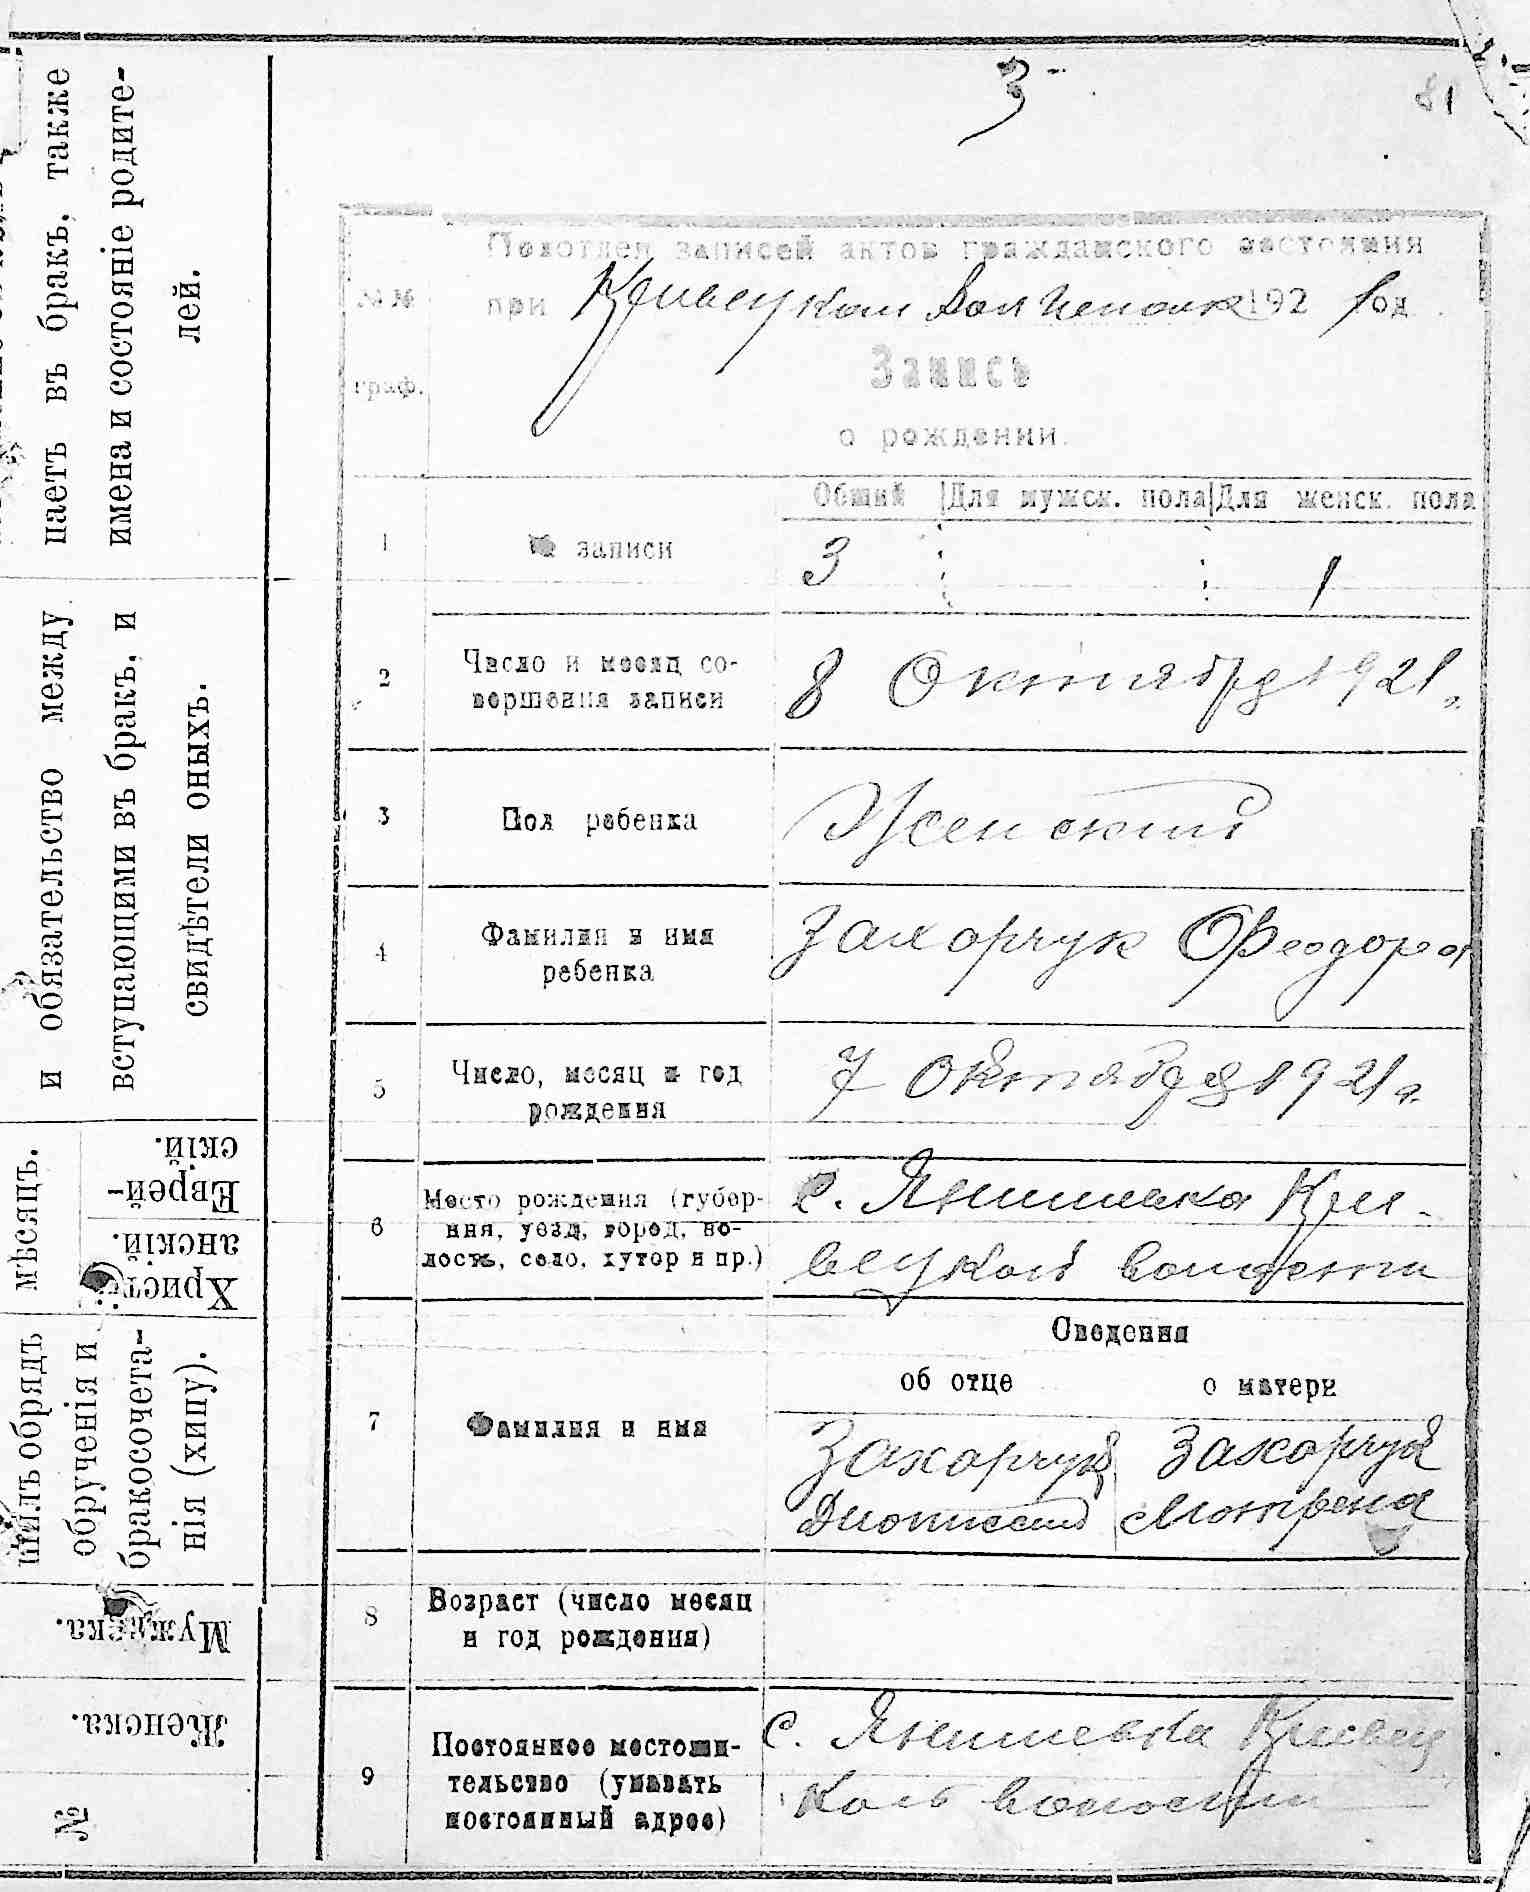 паетъ въ бракъ, также
имена и состояніе родите-
лей.
и обязательство между
вступающими въ бракъ, и
свидѣтели оныхъ.
мѣсяцъ.
Еврей-
скій.
Христі-
анскій.
шилъ обрядъ
обрученія и
бракосочета-
нія (хипу).
Мужеска.
Женска.
№
3
81
Подотдел записей актов гражданского состояния
№№ граф.
при Кривецком Вол 192 1 год
Запись
о рождении.
Общий Для мужск. пола Для женск. пола
1 № записи 3 1
2 Число и месяц со-
вершения записи 8 Октября 1921 г.
3 Пол ребенка Женский
4 Фамилия и имя
ребенка Захорчук Феодора
5 Число, месяц и год
рождения 7 Октября 1921 г.
6 Место рождения (губер-
ния, уезд, город, во-
лость, село, хутор и пр.) с. Янишевка Кри-
вецкой волости
Сведения
об отце о матери
7 Фамилия и имя Захорчук Захорчук
Дионисий Мотрена
8 Возраст (число месяц
и год рождения)
9 Постоянное местожи-
тельство (указать
постоянный адрес) с. Янишевка Кривец
кой волости